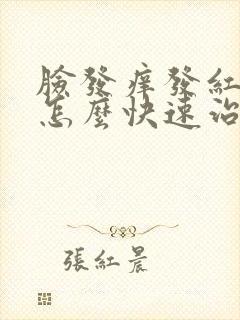 臉發痒發紅
怎麼快速治
張紅晨